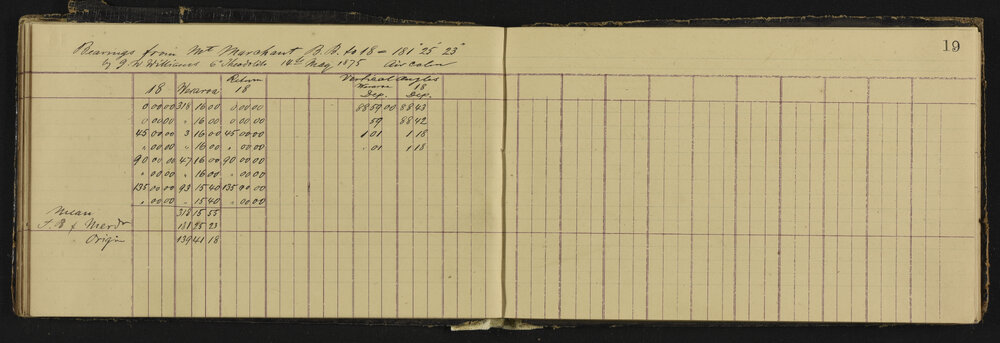 19
Bearings from Mt Marchant B.B. to 18 = 181° 25' 23"
by J. W. Williams 6" Theodolite 14th May 1875 Air calm
18 Wararoa Return 18
Vertical Angles
Wararoa Dep. 18 Dep.
0 00 00 318 16 00 0 00 00 88 59 00 88 43
0 00 00 " 16 00 0 00 00 59 88 42
45 00 00 3 16 00 45 00 00 1 01 1 18
" 00 00 " 16 00 " 00 00 " 01 1 18
90 00 00 47 16 00 90 00 00
" 00 00 " 16 00 " 00 00
135 00 00 93 15 40 135 00 00
" 00 00 " 15 40 " 00 00
Mean 318 15 55
181 25 23
Origin 139 41 18